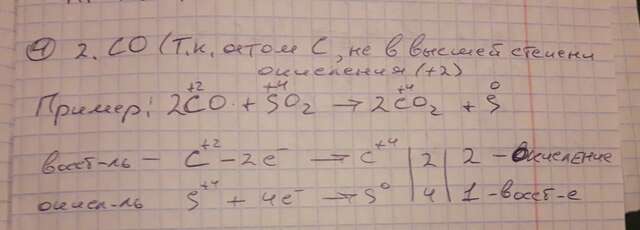 4 2. CO (т.к. атом C, не в высшей степени
окисления (+2)
+2 +4 +4 0
Пример: 2CO + SO2 → 2CO2 + S
восст-ль – C+2 – 2e- → C+4 | 2 | 2 – окисление
окисл-ль S+4 + 4e- → S0 | 4 | 1 – восст-е